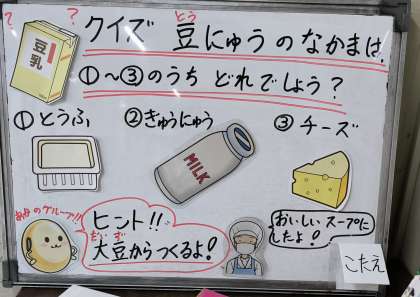 ? ?
クイズ 豆にゅうのなかまは、
とう
豆乳
①〜③のうち どれでしょう?
①とうふ ②きゅうにゅう ③チーズ
MILK
あかのグループ!!
ヒント!!
だいず
大豆からつくるよ!
おいしいスープに
したよ!
こたえ